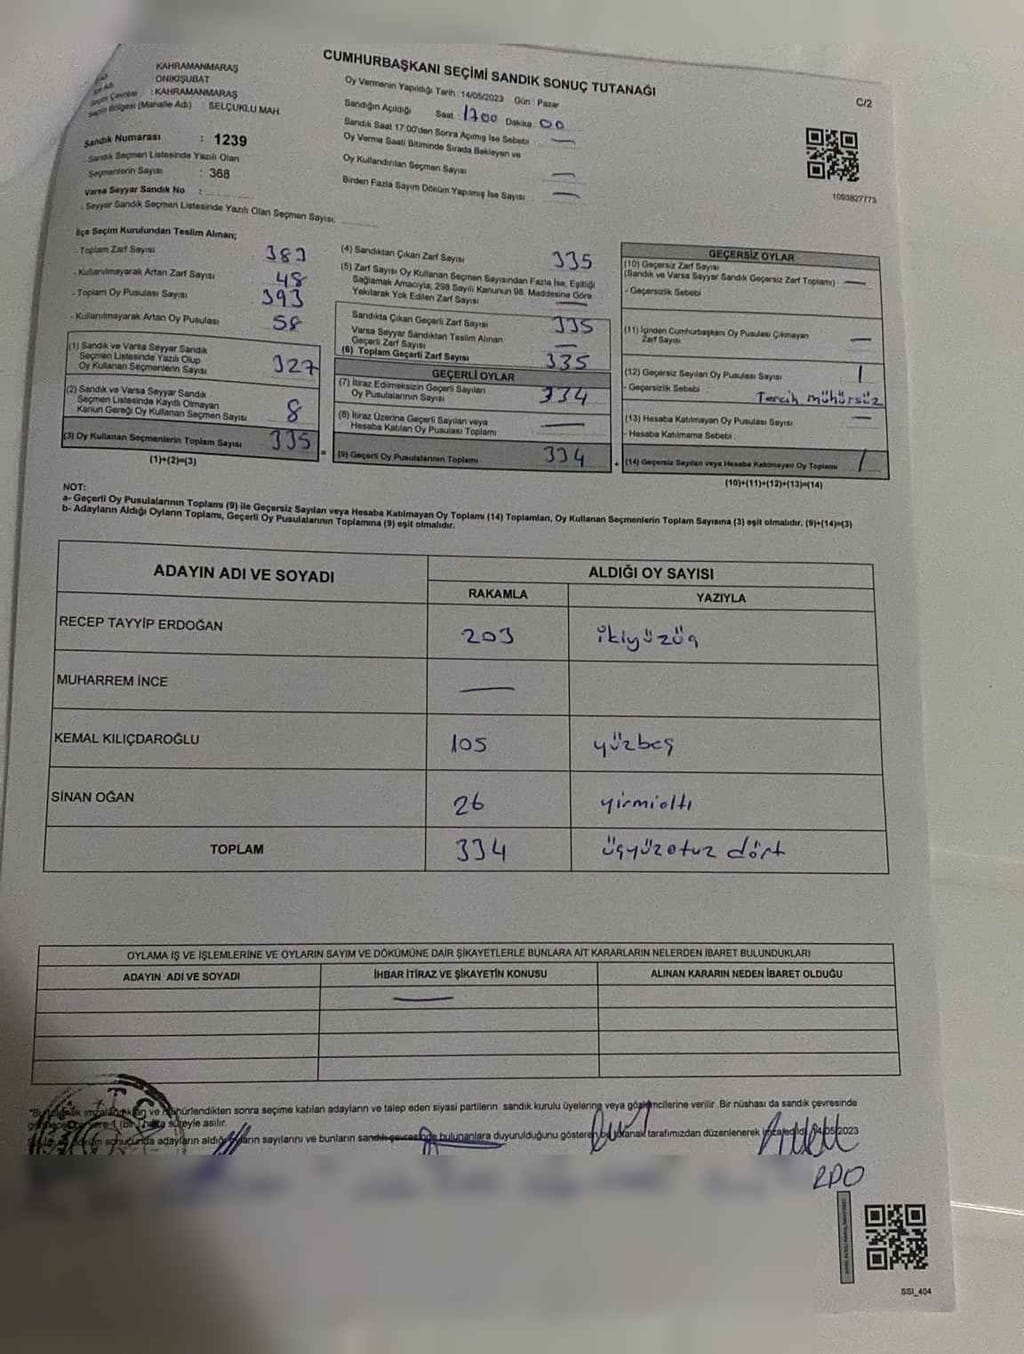 KAHRAMANMARAŞ
ONİKİŞUBAT
Seçim Çevresi : KAHRAMANMARAŞ
Seçim Bölgesi (Mahalle Adı) : SELÇUKLU MAH.
Sandık Numarası : 1239
Sandık Seçmen Listesinde Yazılı Olan
Seçmenlerin Sayısı : 368
Varsa Seyyar Sandık No :
Seyyar Sandık Seçmen Listesinde Yazılı Olan Seçmen Sayısı:
CUMHURBAŞKANI SEÇİMİ SANDIK SONUÇ TUTANAĞI
C/2
Oy Vermenin Yapıldığı Tarih : 14/05/2023 Gün : Pazar
Sandığın Açıldığı Saat 1700 Dakika 00
Sandık Saat 17:00'den Sonra Açımış İse Sebebi —
Oy Verme Saati Bitiminde Sırada Bekleyen ve
Oy Kullandırılan Seçmen Sayısı —
Birden Fazla Sayım Döküm Yapılmış İse Sayısı —
1093827773
İlçe Seçim Kurulundan Teslim Alınan;
- Toplam Zarf Sayısı 383
- Kullanılmayarak Artan Zarf Sayısı 48
- Toplam Oy Pusulası Sayısı 393
- Kullanılmayarak Artan Oy Pusulası 58
(1) Sandık ve Varsa Seyyar Sandık
Seçmen Listesinde Yazılı Olup
Oy Kullanan Seçmenlerin Sayısı 327
(2) Sandık ve Varsa Seyyar Sandık
Seçmen Listesinde Kayıtlı Olmayan
Kanun Gereği Oy Kullanan Seçmen Sayısı 8
(3) Oy Kullanan Seçmenlerin Toplam Sayısı 335
(1)+(2)=(3)
(4) Sandıktan Çıkan Zarf Sayısı 335
(5) Zarf Sayısı Oy Kullanan Seçmen Sayısından Fazla İse, Eşitliği
Sağlamak Amacıyla; 298 Sayılı Kanunun 98. Maddesine Göre
Yakılarak Yok Edilen Zarf Sayısı —
Sandıkta Çıkan Geçerli Zarf Sayısı 335
Varsa Seyyar Sandıktan Teslim Alınan
Geçerli Zarf Sayısı —
(6) Toplam Geçerli Zarf Sayısı 335
GEÇERLİ OYLAR
(7) İtiraz Edilmeksizin Geçerli Sayılan
Oy Pusulalarının Sayısı 334
(8) İtiraz Üzerine Geçerli Sayılan veya
Hesaba Katılan Oy Pusulası Toplamı —
(9) Geçerli Oy Pusulalarının Toplamı 334
GEÇERSİZ OYLAR
(10) Geçersiz Zarf Sayısı
(Sandık ve Varsa Seyyar Sandık Geçersiz Zarf Toplamı) —
- Geçersizlik Sebebi
(11) İçinden Cumhurbaşkanı Oy Pusulası Çıkmayan
Zarf Sayısı —
(12) Geçersiz Sayılan Oy Pusulası Sayısı 1
- Geçersizlik Sebebi Tercih mühürsüz
(13) Hesaba Katılmayan Oy Pusulası Sayısı —
- Hesaba Katılmama Sebebi
(14) Geçersiz Sayılan veya Hesaba Katılmayan Oy Toplamı 1
(10)+(11)+(12)+(13)=(14)
NOT:
a- Geçerli Oy Pusulalarının Toplamı (9) ile Geçersiz Sayılan veya Hesaba Katılmayan Oy Toplamı (14) Toplamları, Oy Kullanan Seçmenlerin Toplam Sayısına (3) eşit olmalıdır. (9)+(14)=(3)
b- Adayların Aldığı Oyların Toplamı, Geçerli Oy Pusulalarının Toplamına (9) eşit olmalıdır.
ADAYIN ADI VE SOYADI ALDIĞI OY SAYISI
RAKAMLA YAZIYLA
RECEP TAYYİP ERDOĞAN 203 ikiyüzüç
MUHARREM İNCE —
KEMAL KILIÇDAROĞLU 105 yüzbeş
SİNAN OĞAN 26 yirmialtı
TOPLAM 334 üçyüzotuz dört
OYLAMA İŞ VE İŞLEMLERİNE VE OYLARIN SAYIM VE DÖKÜMÜNE DAİR ŞİKAYETLERLE BUNLARA AİT KARARLARIN NELERDEN İBARET BULUNDUKLARI
ADAYIN ADI VE SOYADI İHBAR İTİRAZ VE ŞİKAYETİN KONUSU ALINAN KARARIN NEDEN İBARET OLDUĞU
—
ve mühürlendikten sonra seçime katılan adayların ve talep eden siyasi partilerin sandık kurulu üyelerine veya gözlemcilerine verilir. Bir nüshası da sandık çevresinde
süreyle asılır.
sonucunda adayların aldığı oyların sayılarını ve bunların sandık çevresinde bulunanlara duyurulduğunu gösteren bu tutanak tarafımızdan düzenlenerek imzalandı. 14/05/2023
SSI_404